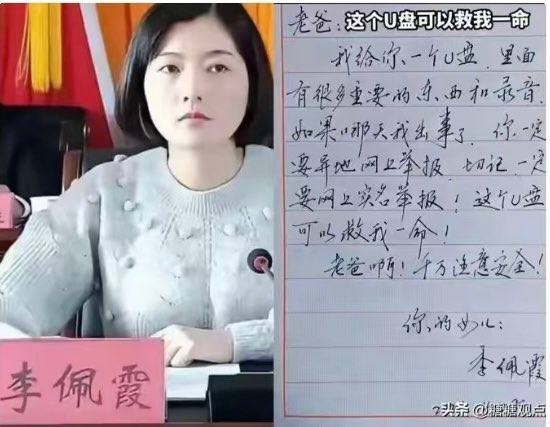 李佩霞
老爸：这个U盘可以救我一命
我给你一个U盘，里面
有很多重要的东西和录音，
如果哪天我出事了，你一定
要异地网上举报，切记，一定
要网上实名举报！这个U盘
可以救我一命！
老爸啊！千万注意安全！
你的女儿：
李佩霞
头条 @糖糖观点